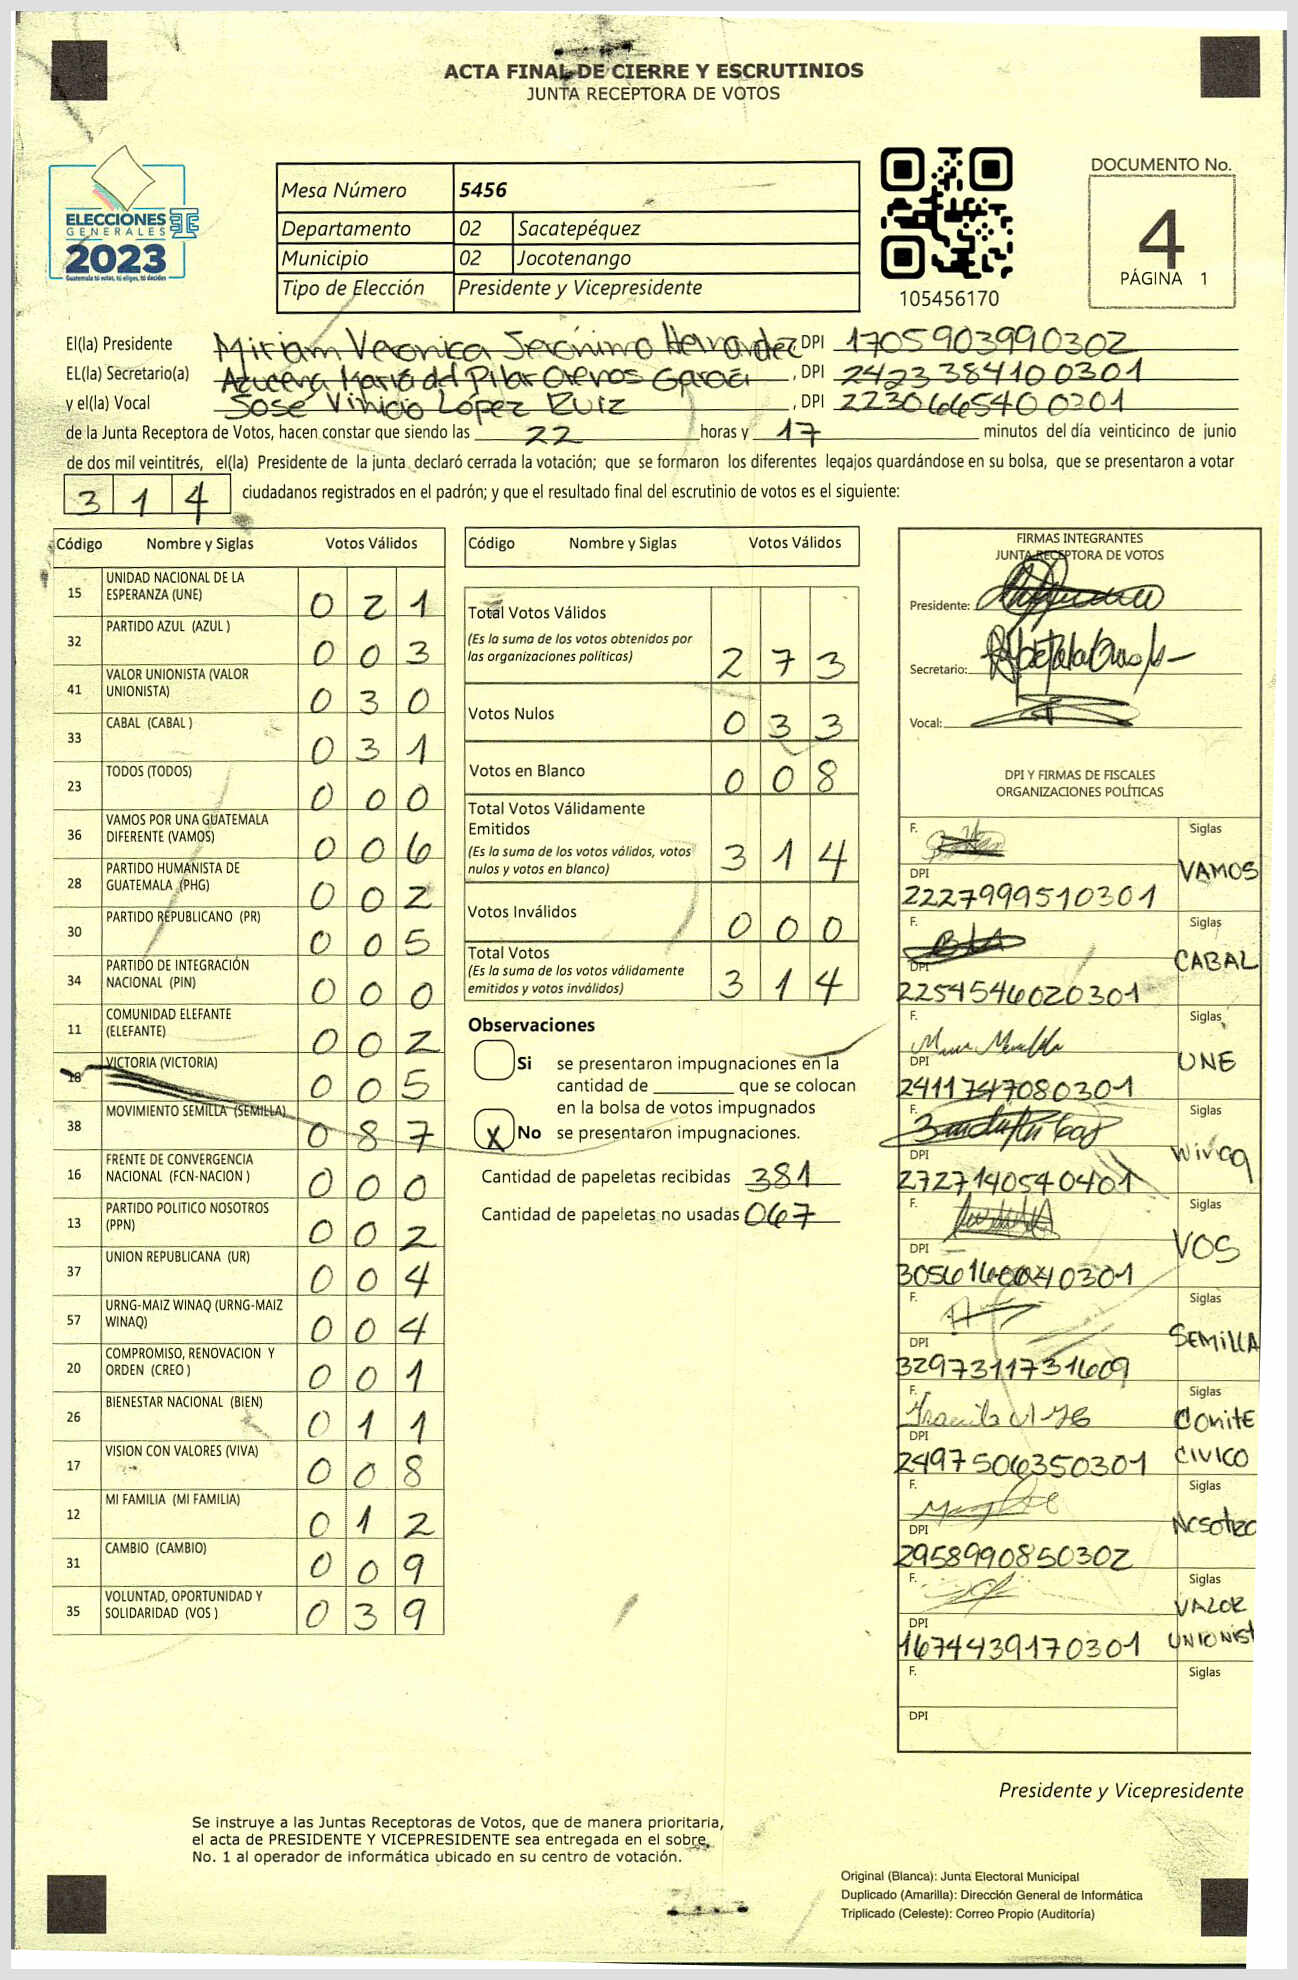 ACTA FINAL DE CIERRE Y ESCRUTINIOS
JUNTA RECEPTORA DE VOTOS
ELECCIONES
GENERALES
2023
Guatemala tú votas, tú eliges, tú decides
Mesa Número 5456
Departamento 02 Sacatepéquez
Municipio 02 Jocotenango
Tipo de Elección Presidente y Vicepresidente
105456170
DOCUMENTO No.
4
PÁGINA 1
El(la) Presidente Miriam Veronica Jerónimo Hernandez, DPI 1705903990302
EL(la) Secretario(a) Azucena María del Pilar Orenos García, DPI 2423384100301
y el(la) Vocal José Vinicio López Ruiz, DPI 2230665400201
de la Junta Receptora de Votos, hacen constar que siendo las 22 horas y 17 minutos del día veinticinco de junio
de dos mil veintitrés, el(la) Presidente de la junta declaró cerrada la votación; que se formaron los diferentes legajos guardándose en su bolsa, que se presentaron a votar
314 ciudadanos registrados en el padrón; y que el resultado final del escrutinio de votos es el siguiente:
Código Nombre y Siglas Votos Válidos
15 UNIDAD NACIONAL DE LA ESPERANZA (UNE) 021
32 PARTIDO AZUL (AZUL ) 003
41 VALOR UNIONISTA (VALOR UNIONISTA) 030
33 CABAL (CABAL ) 031
23 TODOS (TODOS) 000
36 VAMOS POR UNA GUATEMALA DIFERENTE (VAMOS) 006
28 PARTIDO HUMANISTA DE GUATEMALA (PHG) 002
30 PARTIDO REPUBLICANO (PR) 005
34 PARTIDO DE INTEGRACIÓN NACIONAL (PIN) 000
11 COMUNIDAD ELEFANTE (ELEFANTE) 002
18 VICTORIA (VICTORIA) 005
38 MOVIMIENTO SEMILLA (SEMILLA) 087
16 FRENTE DE CONVERGENCIA NACIONAL (FCN-NACION ) 000
13 PARTIDO POLITICO NOSOTROS (PPN) 002
37 UNION REPUBLICANA (UR) 004
57 URNG-MAIZ WINAQ (URNG-MAIZ WINAQ) 004
20 COMPROMISO, RENOVACION Y ORDEN (CREO ) 001
26 BIENESTAR NACIONAL (BIEN) 011
17 VISION CON VALORES (VIVA) 008
12 MI FAMILIA (MI FAMILIA) 012
31 CAMBIO (CAMBIO) 009
35 VOLUNTAD, OPORTUNIDAD Y SOLIDARIDAD (VOS ) 039
Código Nombre y Siglas Votos Válidos
Total Votos Válidos 273
(Es la suma de los votos obtenidos por
las organizaciones políticas)
Votos Nulos 033
Votos en Blanco 008
Total Votos Válidamente
Emitidos 314
(Es la suma de los votos válidos, votos
nulos y votos en blanco)
Votos Inválidos 000
Total Votos 314
(Es la suma de los votos válidamente
emitidos y votos inválidos)
Observaciones
Si se presentaron impugnaciones en la
cantidad de ________ que se colocan
en la bolsa de votos impugnados
X No se presentaron impugnaciones.
Cantidad de papeletas recibidas 381
Cantidad de papeletas no usadas 067
FIRMAS INTEGRANTES
JUNTA RECEPTORA DE VOTOS
Presidente:
Secretario:
Vocal:
DPI Y FIRMAS DE FISCALES
ORGANIZACIONES POLÍTICAS
F. Siglas
DPI VAMOS
2227999510301
F. Siglas
DPI CABAL
2254546020301
F. Siglas
DPI UNE
2411747080301
F. Siglas
DPI Winaq
2727140540401
F. Siglas
DPI VOS
F. Siglas
DPI SEMILLA
3297311731609
F. Siglas
DPI COMITE CIVICO
2497506350301
F. Siglas
DPI Nosotro
2958990850302
F. Siglas
DPI VALOR UNIONIST
1674439170301
F. Siglas
DPI
Presidente y Vicepresidente
Se instruye a las Juntas Receptoras de Votos, que de manera prioritaria,
el acta de PRESIDENTE Y VICEPRESIDENTE sea entregada en el sobre
No. 1 al operador de informática ubicado en su centro de votación.
Original (Blanca): Junta Electoral Municipal
Duplicado (Amarilla): Dirección General de Informática
Triplicado (Celeste): Correo Propio (Auditoría)